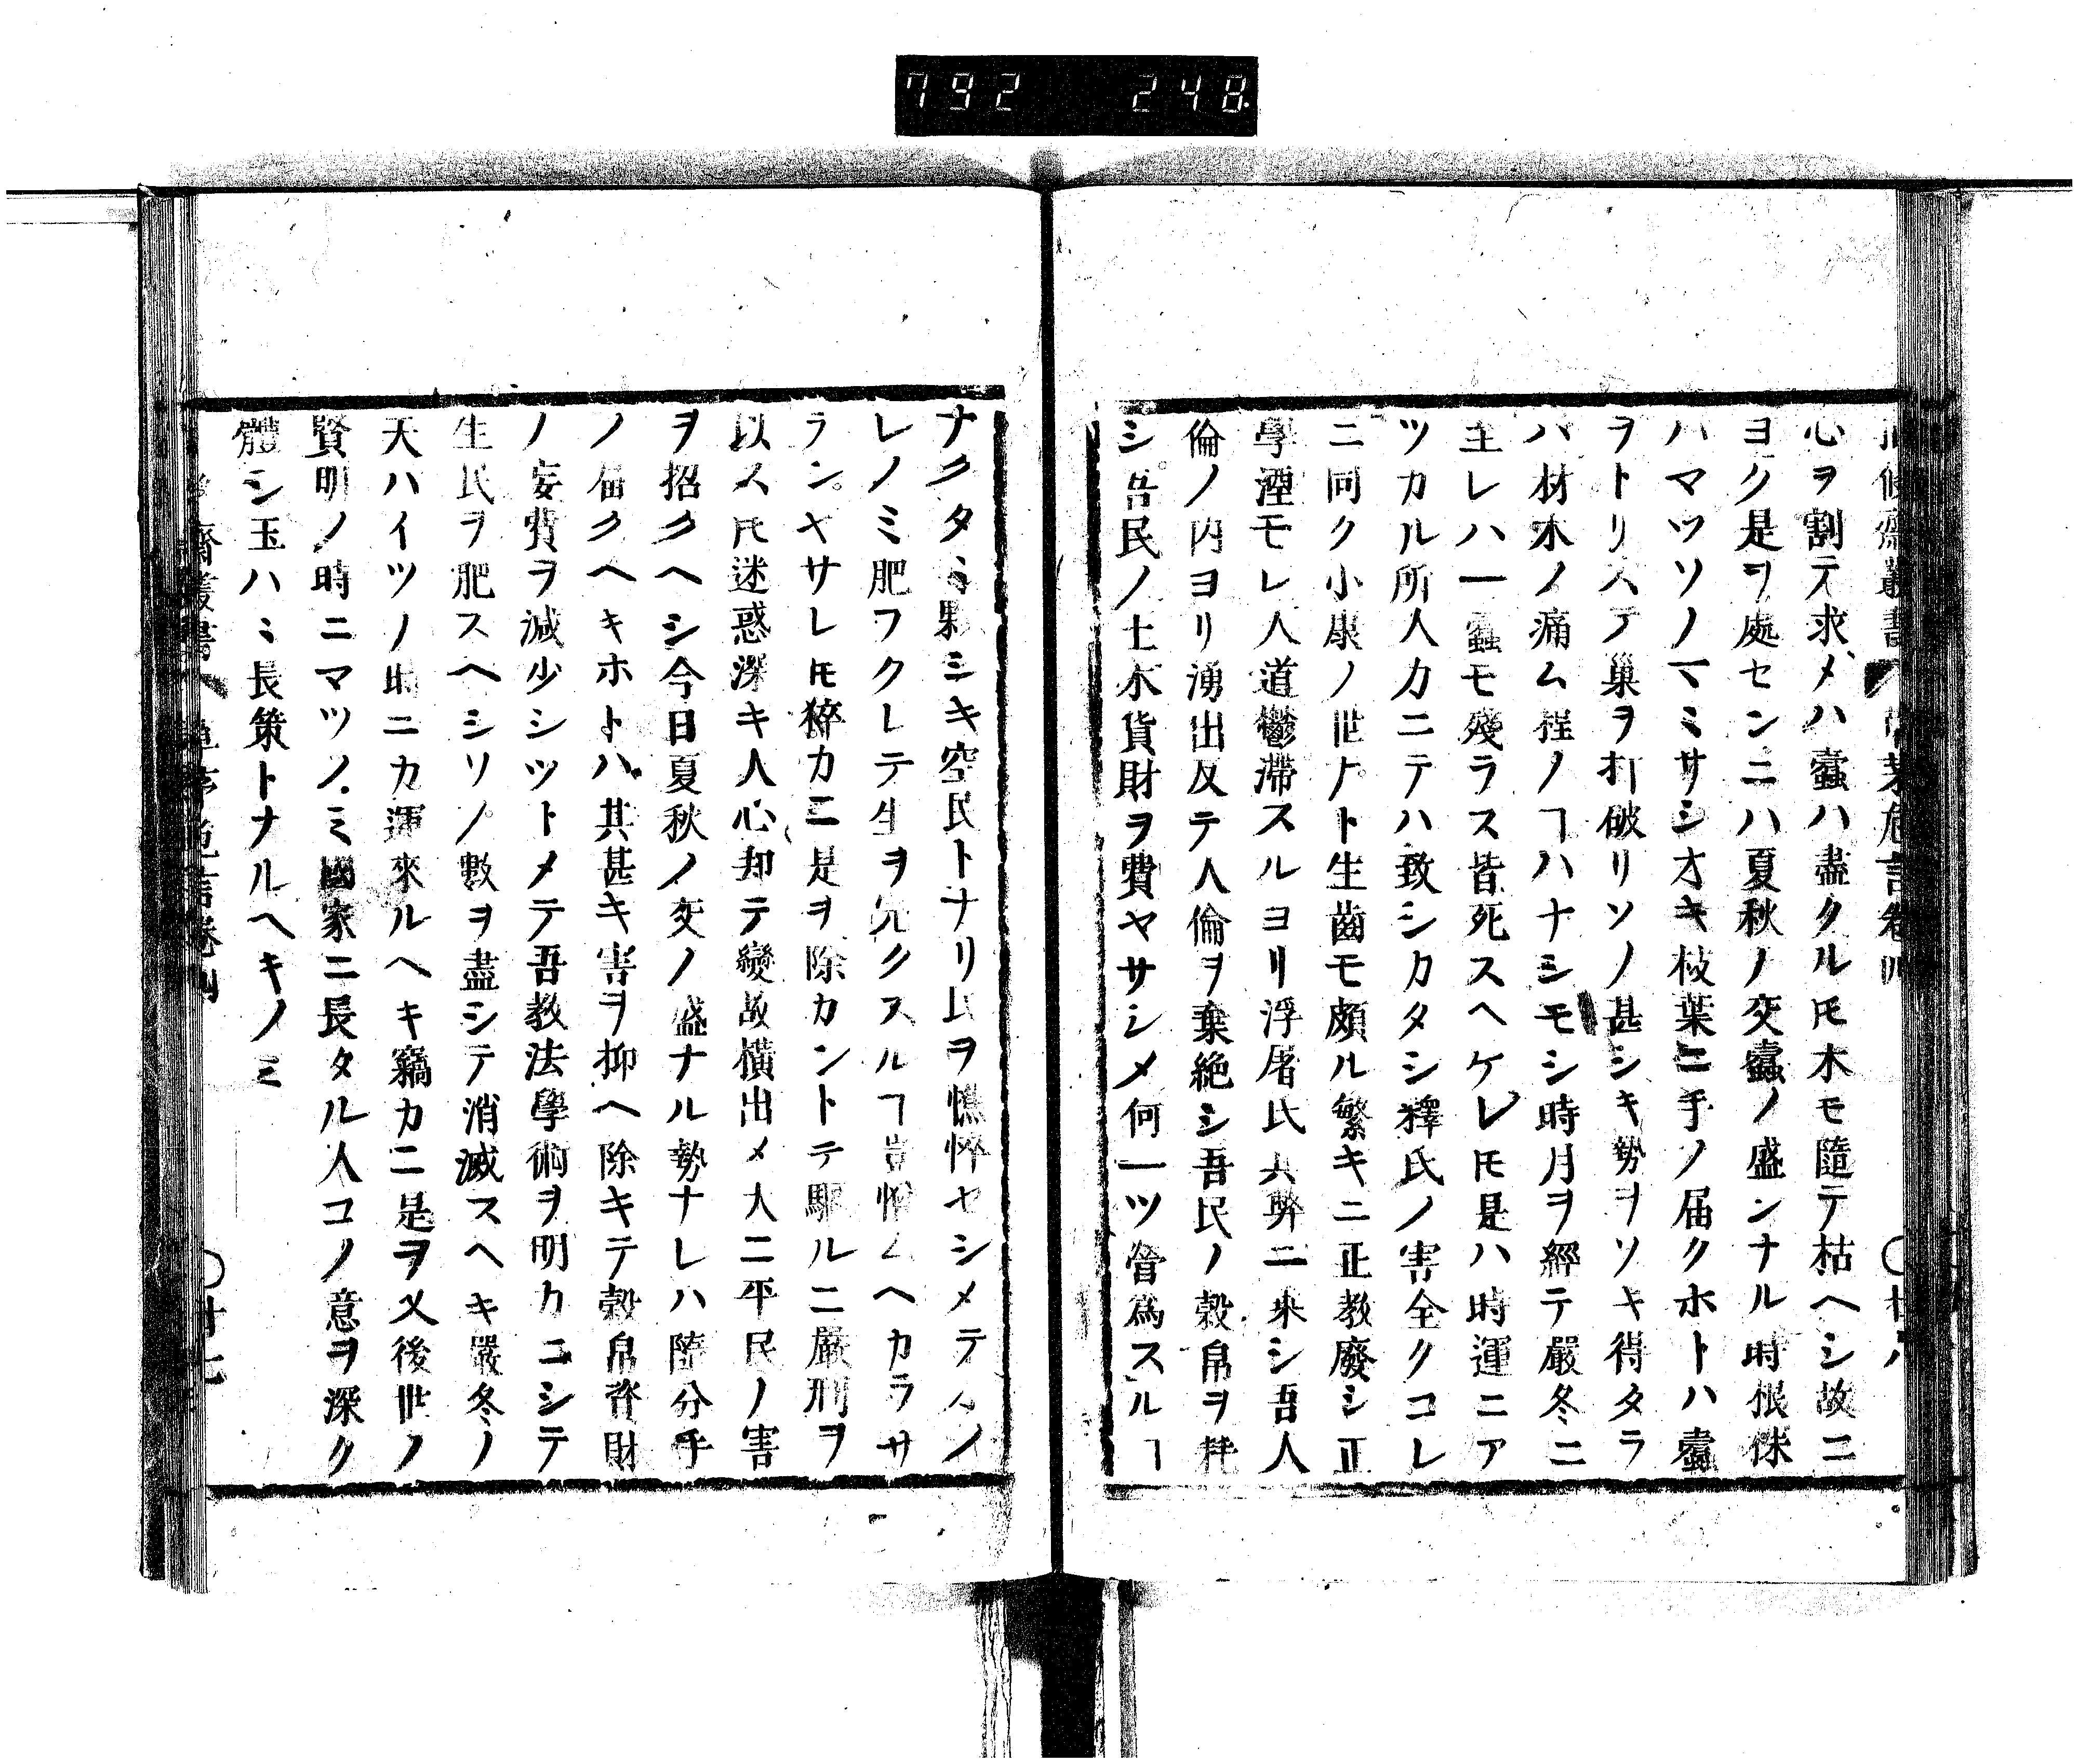 792 248
心ヲ割テ求メハ蠧ハ盡クルﾓ木モ隨テ枯ヘシ故ニ
ヨク是ヲ處センニハ夏秋ノ交蠧ノ盛ンナル時根株
ハマツソノマミサシオキ枝葉ニ手ノ届クホトハ蠧
ヲトリステ巢ヲ打破リソノ甚シキ勢ヲソキ得タラ
ハ材木ノ痛ム程ノヿハナシモシ時月ヲ經テ嚴冬ニ
至レハ一蠧モ殘ラス皆死スヘケレﾓ是ハ時運ニア
ツカル所人カニテハ致シカタシ釋氏ノ害全クコレ
ニ同ク小康ノ世ト生齒モ頗ル繁キニ正教廢シ正
學湮モレ人道鬱滯スルヨリ浮屠氏其弊ニ乘シ吾人
倫ノ内ヨリ湧出反テ人倫ヲ棄絶シ吾民ノ穀帛ヲ耗
シ吾民ノ土木貨財ヲ費ヤサシメ何一ツ營爲スルヿ
ナクタミ夥シキ空民トナリ民ヲ憔悴セシメテ
レノミ肥フクレテ生ヲ允クスルヿ豈憎ムヘカラサ
ランヤサレﾓ猝カニ是ヲ除カントテ驅ルニ嚴刑ヲ
以スﾓ迷惑深キ人心却テ變故橫出メ大ニ平民ノ害
ヲ招クヘシ今日夏秋ノ交ノ盛ナル勢ナレハ隨分手
ノ届クヘキホトハ其甚キ害ヲ抑ヘ除キテ穀帛資財
ノ妄費ヲ減少シツトメテ吾教法學術ヲ明カニシテ
生民ヲ肥スヘシソノ數ヲ盡シテ消滅スヘキ嚴冬ノ
天ハイツノ時ニカ運來ルヘキ竊カニ是ヲ又後世ノ
賢明ノ時ニマツノミ國家ニ長タル人コノ意ヲ深ク
體シ玉ハミ長策トナルヘキノミ
齋叢書 危言卷四 廿七